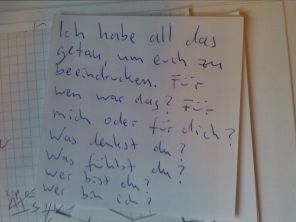 Ich habe all das
getan, um euch zu
beeindrucken. Für
wen war das? Für
mich oder für dich?
Was denkst du?
Was fühlst du?
wer bist du?
wer bin ich?